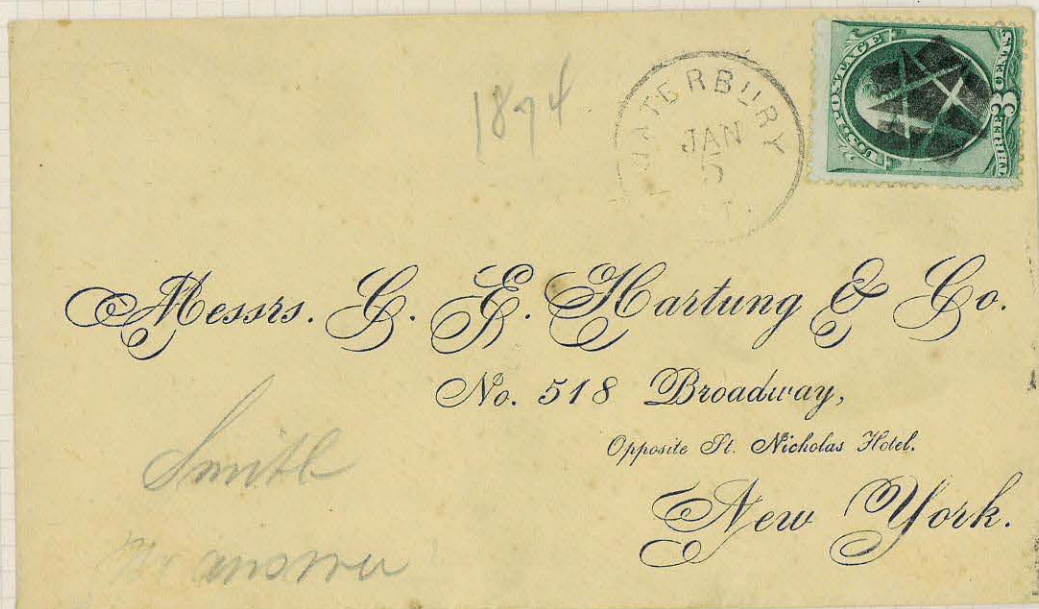 1874
WATERBURY
JAN
5
U.S. POSTAGE
3
THREE CENTS
Messrs. G. E. Hartung & Co.
No. 518 Broadway,
Opposite St. Nicholas Hotel.
New York.
Smith
answer